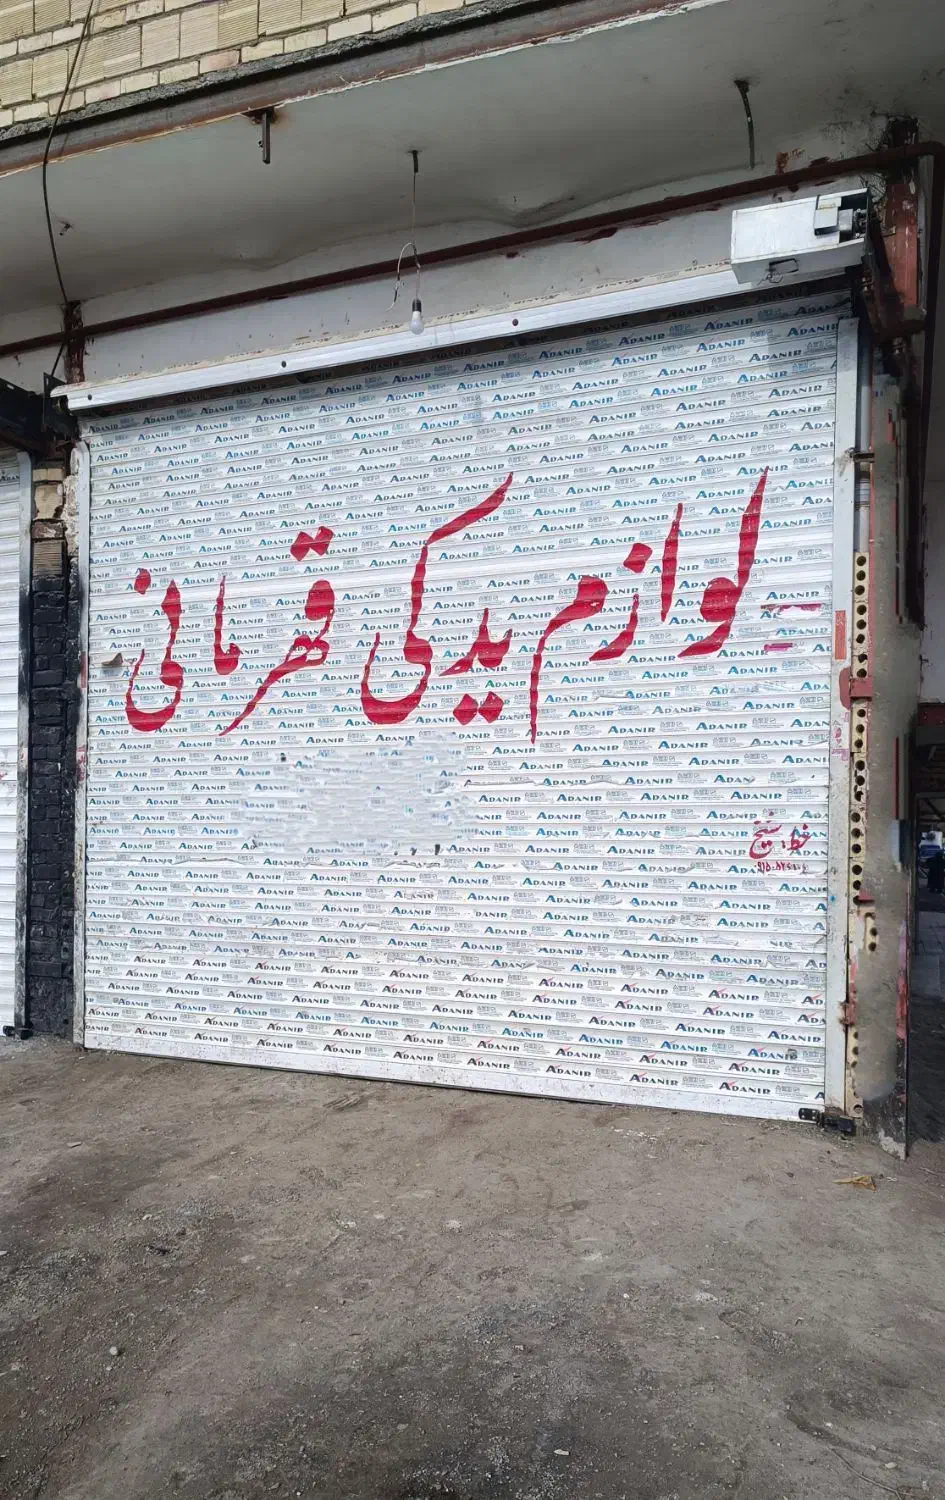 لوازم یدکی قهرمانی
ADANIR
خط: شیخ